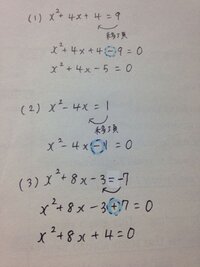 (1) x²+4x+4=9
移項
x²+4x+4-9=0
x²+4x-5=0
(2) x²-4x=1
移項
x²-4x-1=0
(3) x²+8x-3=-7
x²+8x-3+7=0
x²+8x+4=0